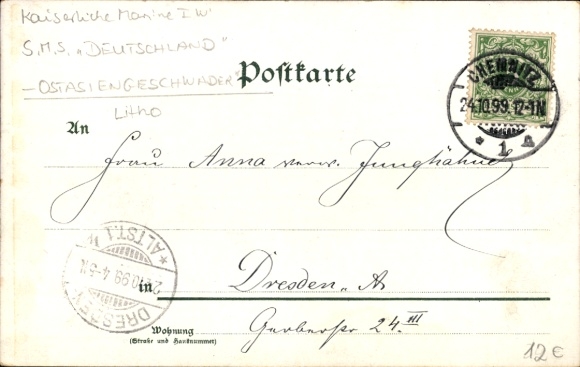 Kaiserliche Marine I W
S.M.S. „DEUTSCHLAND"
- OSTASIENGESCHWADER
Litho
Postkarte
CHEMNITZ
24.10.99. 12-1N
* 1 A
An
Frau Anna verw. Junghähnel
DRESDEN
ALTST. 1
10.99. 4-5N
in Dresden A.
Wohnung
(Straße und Hausnummer)
Gerberstr 24. III
12 €